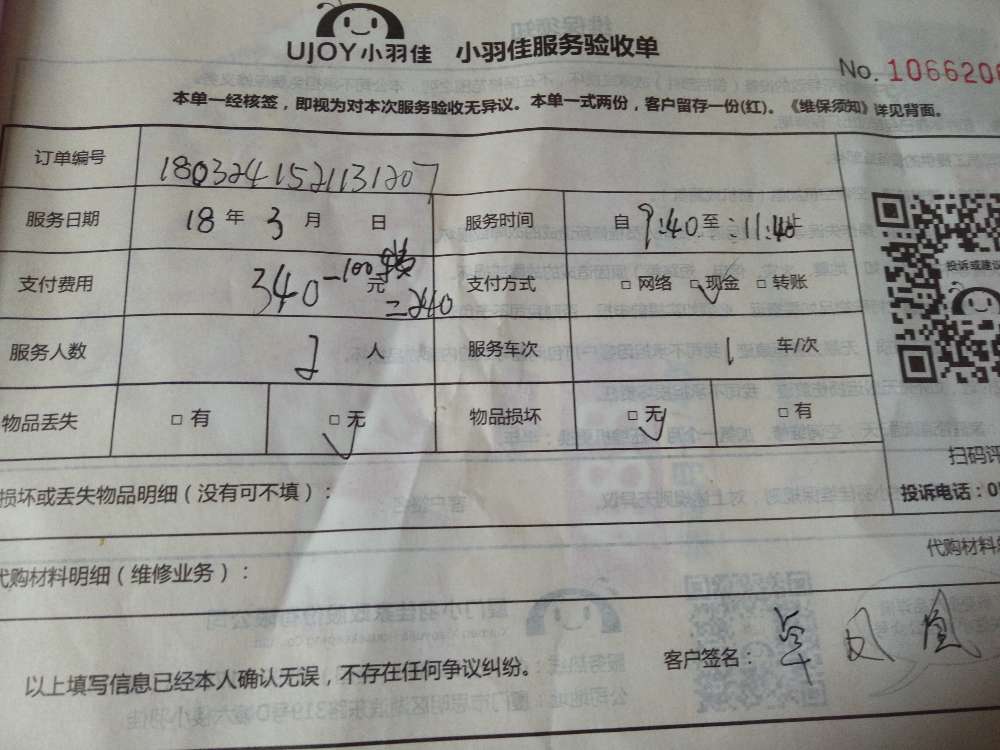 UJOY小羽佳 小羽佳服务验收单
No. 1066206
本单一经核签，即视为对本次服务验收无异议。本单一式两份，客户留存一份(红)。《维保须知》详见背面。
订单编号 1803241521131207
服务日期 18 年 3 月 日 服务时间 自 9:40 至 :11:40 止
支付费用 340-100 元 =240 支付方式 □ 网络 □ 现金 □ 转账
投诉或建议
服务人数 2 人 服务车次 1 车/次
物品丢失 □ 有 □ 无 物品损坏 □ 无 □ 有
扫码评
损坏或丢失物品明细（没有可不填）：
投诉电话：0
代购材料
代购材料明细（维修业务）：
以上填写信息已经本人确认无误，不存在任何争议纠纷。 客户签名： 凤凰